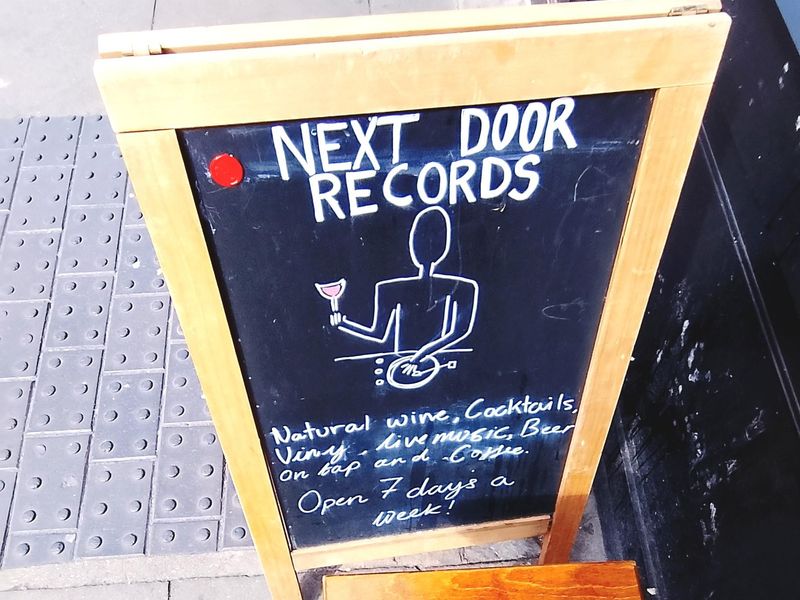 NEXT DOOR
RECORDS
Natural wine, Cocktails,
Vinyl, live music, Beer
on tap and Coffee.
Open 7 days a
week!